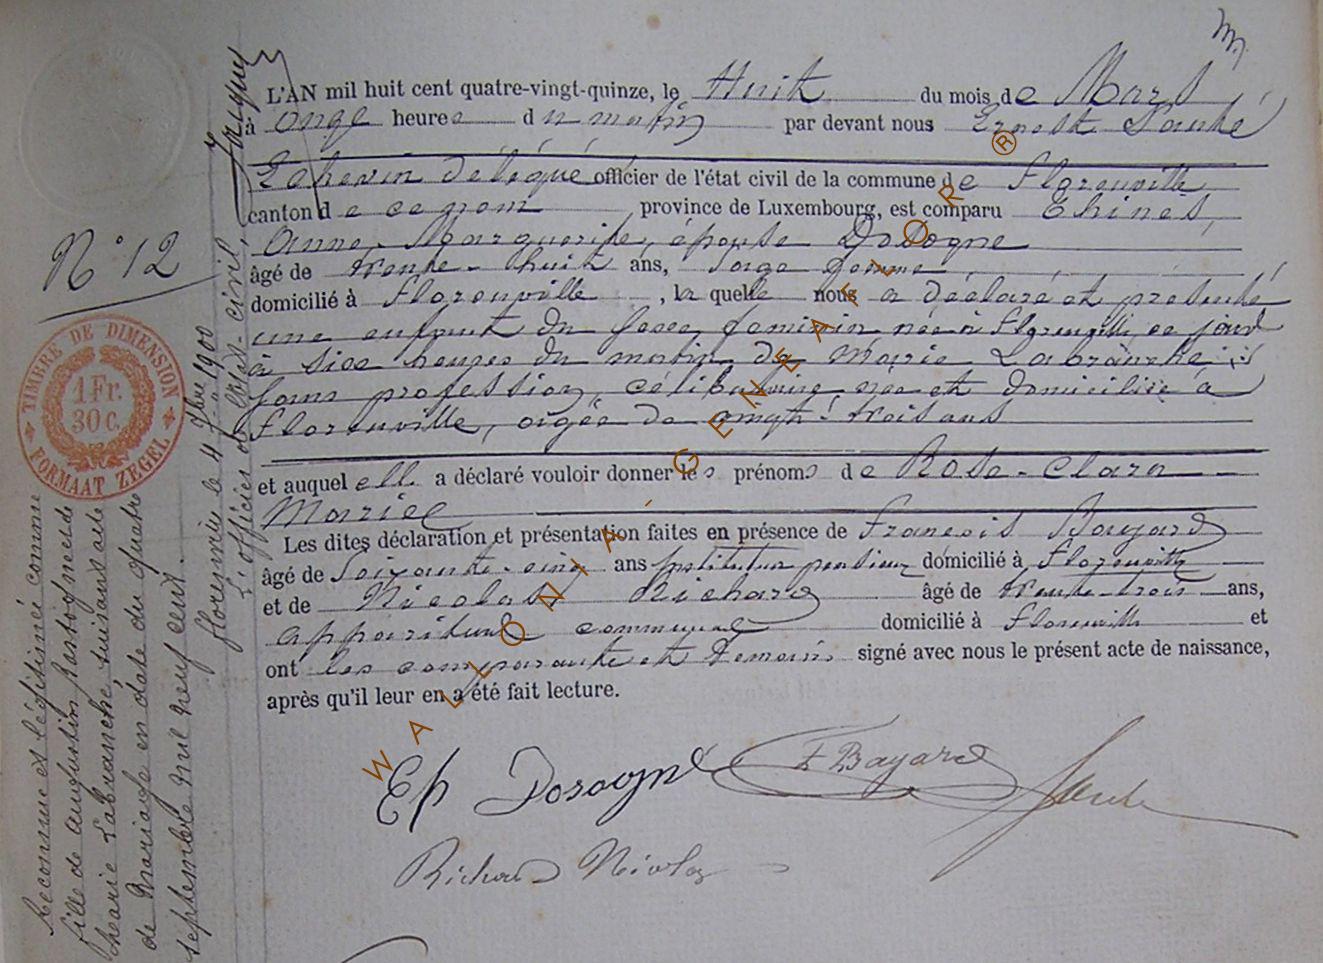 N° 12
L'AN mil huit cent quatre-vingt-quinze, le Huit du mois de Mars
à onze heures du matin par devant nous Ernest
Echevin délégué officier de l'état civil de la commune de Florenville
canton de ce nom province de Luxembourg, est comparu Thinès,
Anne, Marguerite, épouse Dosogne
âgé de trente-huit ans, Sage femme
domicilié à Florenville, la quelle nous a déclaré et présenté
une enfant du sexe féminin née à Florenville, ce jour
à six heures du matin de Marie Labranche,
sans profession, célibataire née et domiciliée à
Florenville, âgée de vingt-trois ans
et auquel elle a déclaré vouloir donner les prénoms de Rose-Clara
Marie
Les dites déclaration et présentation faites en présence de François Bayard
âgé de Soixante-cinq ans Instituteur domicilié à Florenville
et de Nicolas Richard âgé de trente-trois ans,
appariteur communal domicilié à Florenville et
ont les comparante et témoins signé avec nous le présent acte de naissance,
après qu'il leur en a été fait lecture.
Ep Dosogne F Bayard
Richard Nicolas
TIMBRE DE DIMENSION
1 Fr.
30 C.
FORMAAT ZEGEL
Reconnue et légitimée comme
fille de augustin et de
Marie Labranche, suivant acte
de Mariage en date du quatre
septembre Mil neuf cent.
Florenville le 4 7bre 1900
L'officier de l'état-civil,
Jacques
WALLONIA-GENEAFLOR ®